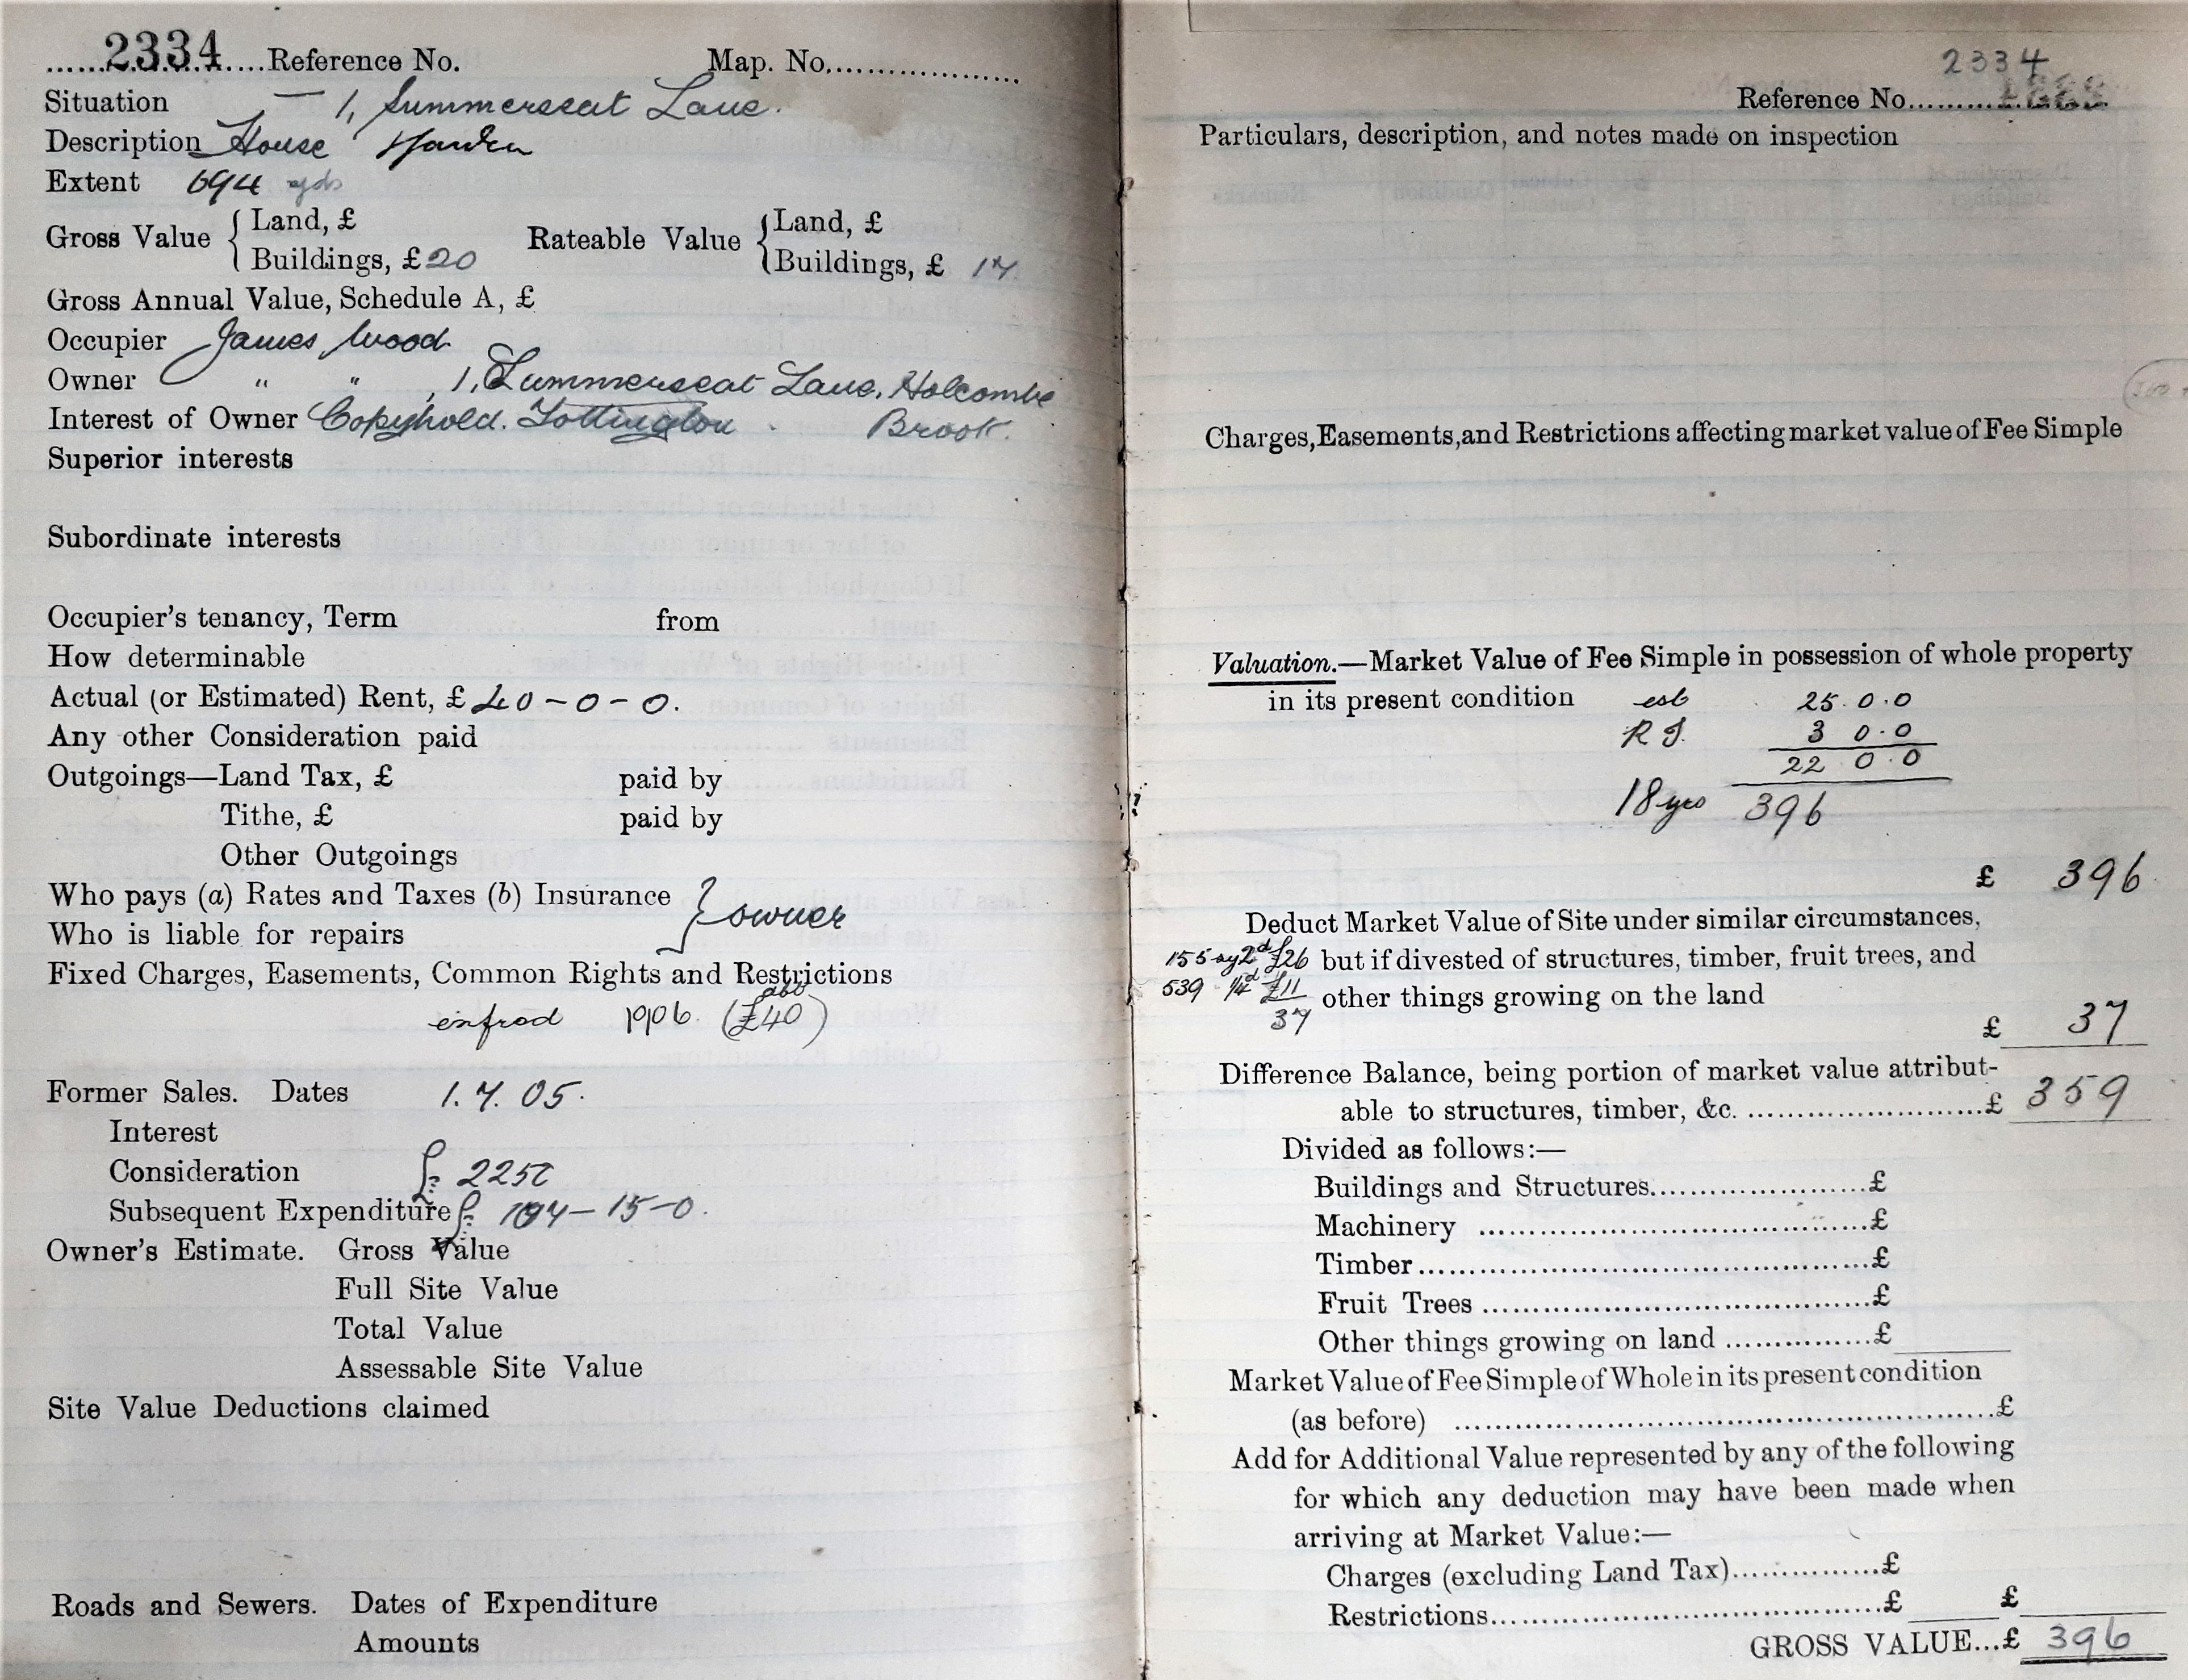 2334 Reference No. Map. No.
Situation — 1, Summerseat Lane.
Description House Garden
Extent 694 yds
Gross Value { Land, £ Rateable Value { Land, £
Buildings, £20 Buildings, £ 17
Gross Annual Value, Schedule A, £
Occupier James Wood
Owner " " , 1, Summerseat Lane, Holcombe
Interest of Owner Copyhold. Tottington. Brook.
Superior interests
Subordinate interests
Occupier's tenancy, Term from
How determinable
Actual (or Estimated) Rent, £ 40-0-0.
Any other Consideration paid
Outgoings—Land Tax, £ paid by
Tithe, £ paid by
Other Outgoings
Who pays (a) Rates and Taxes (b) Insurance } owner
Who is liable for repairs
Fixed Charges, Easements, Common Rights and Restrictions
1906. (£40)
Former Sales. Dates 1.7.05.
Interest
Consideration £ 225
Subsequent Expenditure £ 15-0.
Owner's Estimate. Gross Value
Full Site Value
Total Value
Assessable Site Value
Site Value Deductions claimed
Roads and Sewers. Dates of Expenditure
Amounts
2334
Reference No.
Particulars, description, and notes made on inspection
Charges, Easements, and Restrictions affecting market value of Fee Simple
Valuation.—Market Value of Fee Simple in possession of whole property
in its present condition est 25.0.0
3 0.0
22 0.0
18 yrs 396
£ 396
Deduct Market Value of Site under similar circumstances,
155 2d £26 but if divested of structures, timber, fruit trees, and
539 1/4d £11 other things growing on the land
37
£ 37
Difference Balance, being portion of market value attribut-
able to structures, timber, &c. £ 359
Divided as follows:—
Buildings and Structures £
Machinery £
Timber £
Fruit Trees £
Other things growing on land £
Market Value of Fee Simple of Whole in its present condition
(as before) £
Add for Additional Value represented by any of the following
for which any deduction may have been made when
arriving at Market Value:—
Charges (excluding Land Tax) £
Restrictions £ £
GROSS VALUE...£ 396